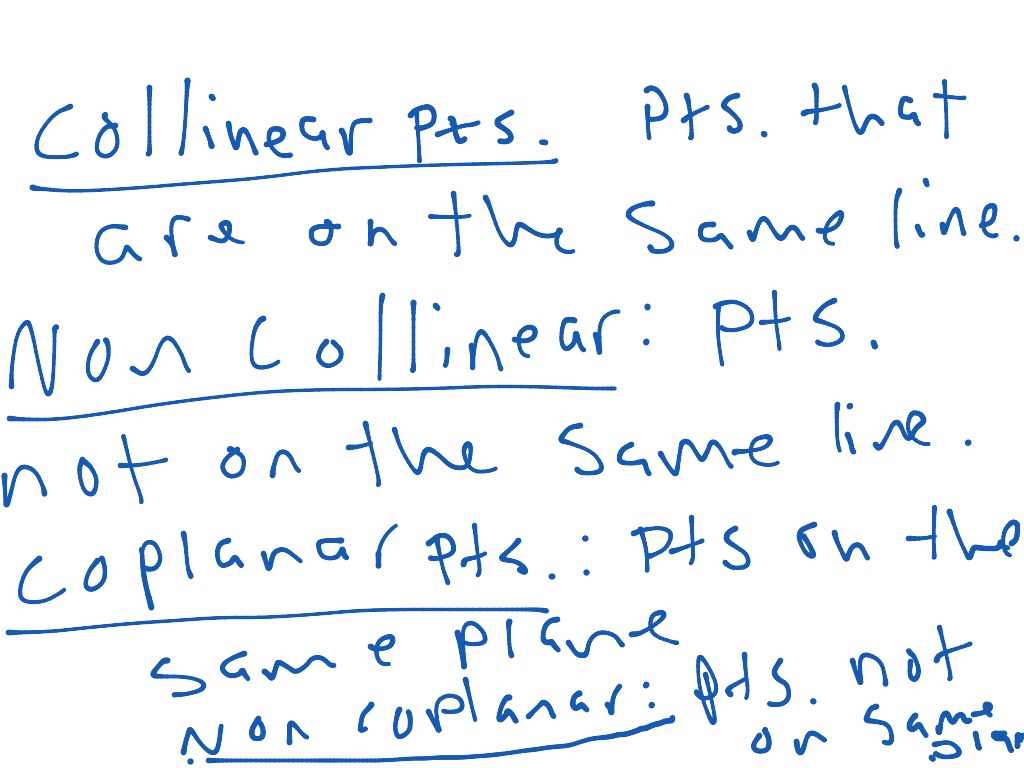 Collinear pts. pts. that
are on the same line.
Non Collinear: pts.
not on the same line.
Coplanar pts.: pts on the
same plane
Non coplanar: pts. not
on same